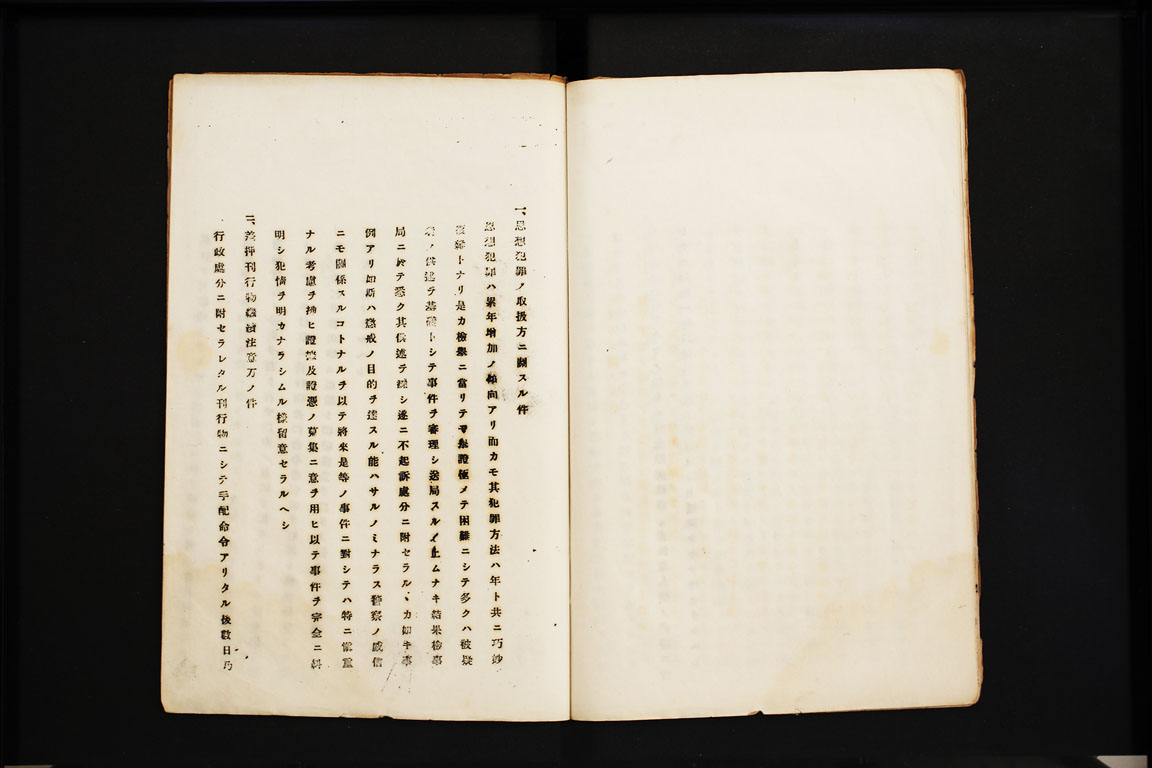 一、思想犯罪ノ取扱方ニ關スル件
思想犯罪ハ累年增加ノ傾向アリ而カモ其犯罪方法ハ年ト共ニ巧妙
複雜トナリ是カ檢擧ニ當リテ證極メテ困難ニシテ多クハ被疑
者ノ供述ヲ基礎トシテ事件ヲ審理シ送局スルノ止ムナキ結果檢事
局ニ於テ悉ク其供述ヲ飜シ遂ニ不起訴處分ニ附セラルヽカ如キ事
例アリ如斯ハ懲戒ノ目的ヲ達スル能ハサルノミナラス警察ノ威信
ニモ關係スルコトナルヲ以テ將來是等ノ事件ニ對シテハ特ニ愼重
ナル考慮ヲ拂ヒ證據及證憑ノ募集ニ意ヲ用ヒ以テ事件ヲ完全ニ糾
明シ犯情ヲ明カナラシムル樣留意セラルヘシ
二、差押刊行物注意方ノ件
行政處分ニ附セラレタル刊行物ニシテ手配命令アリタル後數日乃